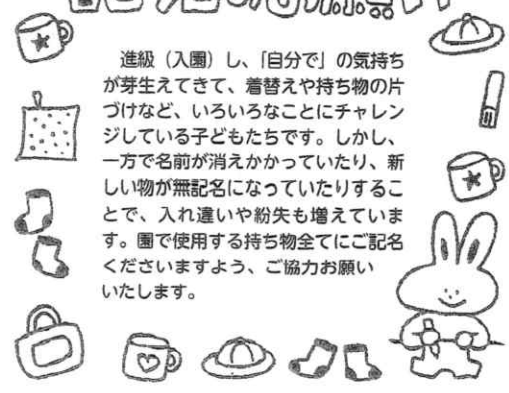 進級（入園）し、「自分で」の気持ち
が芽生えてきて、着替えや持ち物の片
づけなど、いろいろなことにチャレン
ジしている子どもたちです。しかし、
一方で名前が消えかかっていたり、新
しい物が無記名になっていたりするこ
とで、入れ違いや紛失も増えていま
す。園で使用する持ち物全てにご記名
くださいますよう、ご協力お願い
いたします。